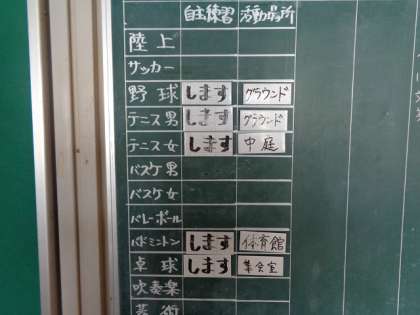 自主練習 活動場所
陸上
サッカー
野球 します グラウンド
テニス男 します グラウンド
テニス女 します 中庭
バスケ男
バスケ女
バレーボール
バドミントン します 体育館
卓球 します 集会室
吹奏楽
美術